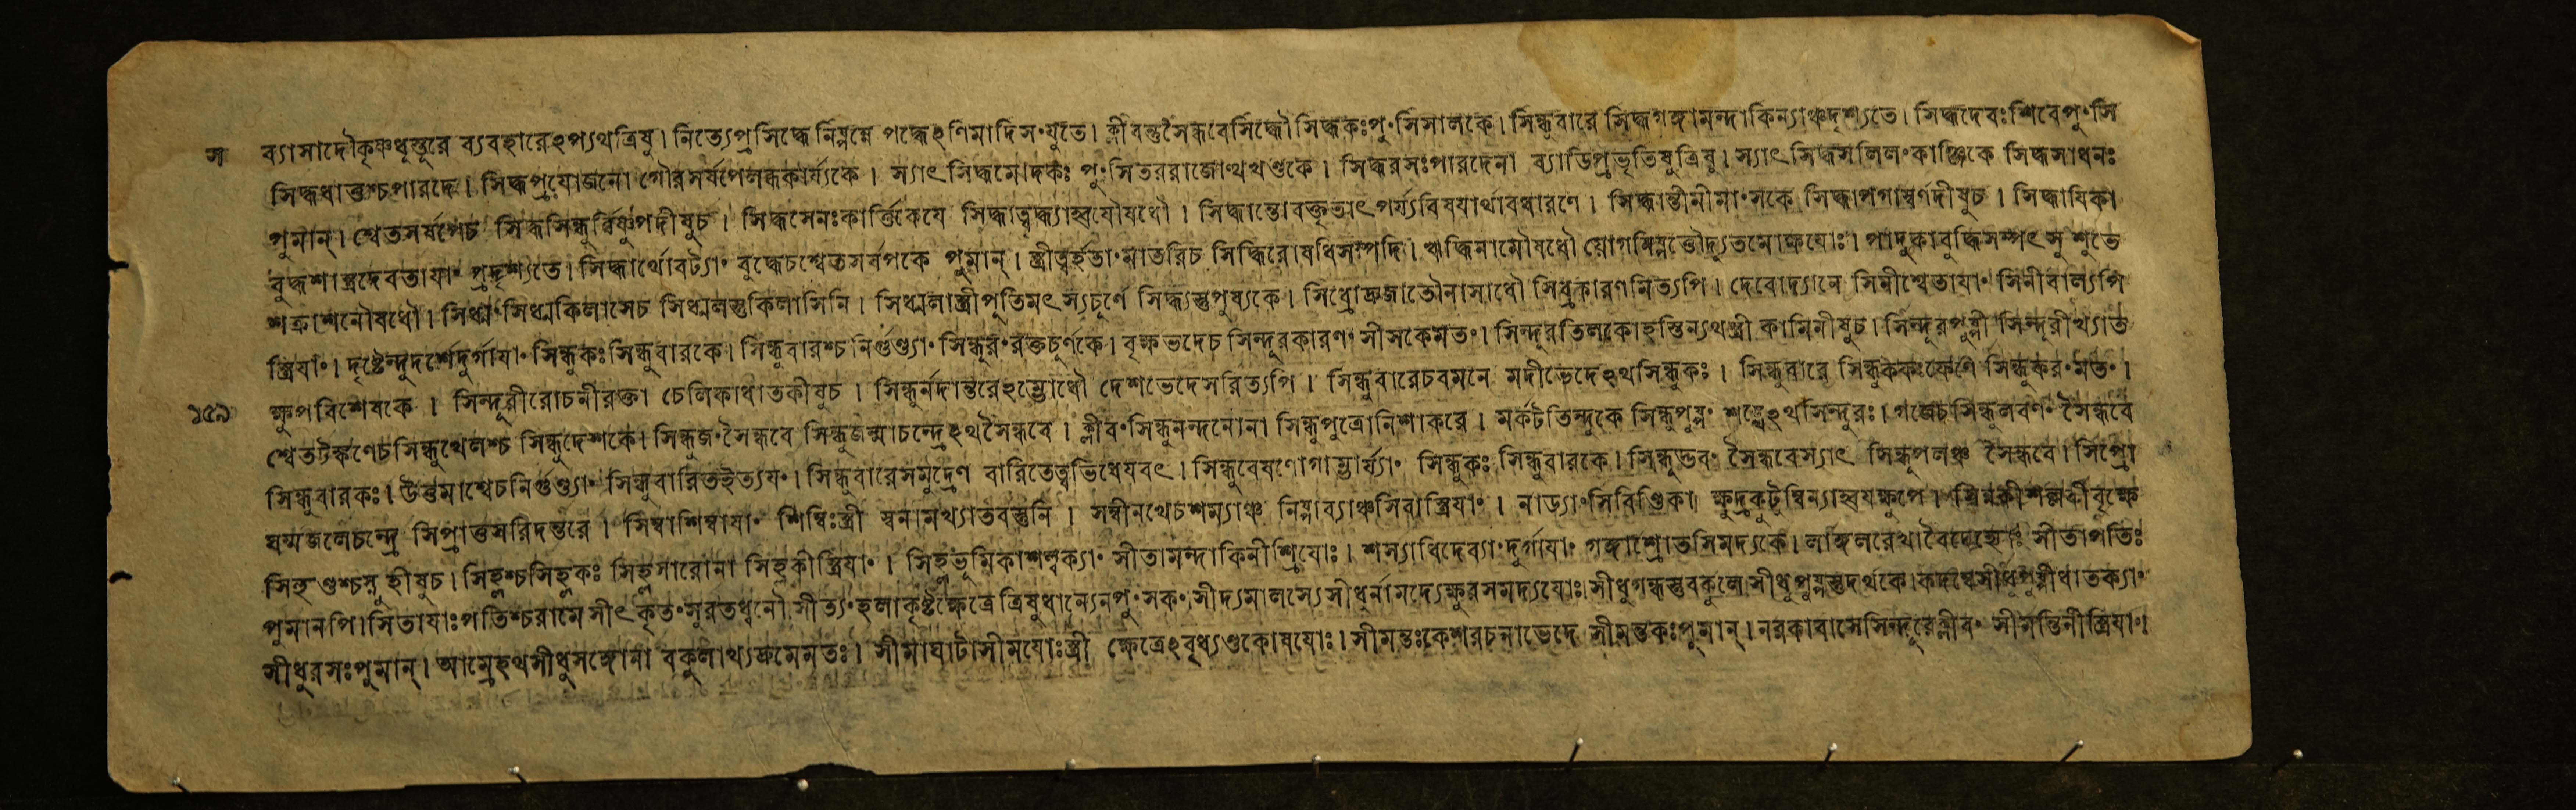 স ব্যাসাদৌকৃষ্ণধুস্তূরে ব্যবহারেঽপ্যথত্রিষু। নিত্যেপ্রসিদ্ধে নিষ্পন্নে পদ্ধেঽণিমাদিসংযুতে। ক্লীবন্তুসৈন্ধবেসিদ্ধৌ সিদ্ধকঃপুংসিসালকে। সিন্ধুবারে সিদ্ধগঙ্গামন্দাকিন্যাঞ্চদৃশ্যতে। সিদ্ধদেবঃশিবেপুংসি
সিদ্ধধাতুশ্চপারদে। সিদ্ধপ্রযোজনো গৌরসর্ষপেলব্ধকার্য্যকে। স্যাৎসিদ্ধমোদকঃ পুংসিতররাজোত্থখণ্ডকে। সিদ্ধরসঃপারদেনা ব্যাডিপ্রভৃতিষুত্রিষু। স্যাৎসিদ্ধসলিলংকাঞ্জিকে সিদ্ধসাধনঃ
পুমান্। শ্বেতসর্ষপেচ সিদ্ধসিন্ধুর্বিষ্ণুপদীষুচ। সিদ্ধসেনঃকার্ত্তিকেযে সিদ্ধাত্বৃদ্ধ্যাহ্বযৌষধৌ। সিদ্ধান্তোবক্তৃতাৎপর্য্যবিষযার্থাবধারণে। সিদ্ধান্তীমীমাংসকে সিদ্ধাপগাস্বর্ণদীষুচ। সিদ্ধাযিকা
বুদ্ধশাস্ত্রদেবতাযাং প্রদৃশ্যতে। সিদ্ধার্থোবট্যাং বুদ্ধেচশ্বেতসর্ষপকে পুমান্। স্ত্রীত্বর্হতাংমাতরিচ সিদ্ধিরোষধিসম্পদি। ঋদ্ধিনামৌষধৌ যোগনিষ্পত্তৌদ্যুতমোক্ষযোঃ। পাদুকাবুদ্ধিসম্পৎসু শুভে
শক্রাশনৌষধৌ। সিধ্মংসিধ্মকিলাসেচ সিধ্মলস্তুকিলাসিনি। সিধ্মলাস্ত্রীপূতিমৎস্যচূর্ণে সিদ্ধ্যস্তুপুষ্যকে। সিধ্রোদ্রুজাতৌনাসাধৌ সিধ্রকারণমিত্যপি। দেবোদ্যানে সিনীশ্বেতাযাং সিনীবাল্যপি
স্ত্রিযাং। দৃষ্টেন্দুদর্শেদুর্গাযাং সিন্ধুকঃসিন্ধুবারকে। সিন্ধুবারশ্চনির্গুণ্ড্যাং সিন্ধুরংরক্তচূর্ণকে। বৃক্ষভদেচ সিন্দূরকারণং সীসকেমতং। সিন্দূরতিলকোহস্তিন্যথস্ত্রী কামিনীষুচ। সিন্দূরপুষ্পী সিন্দূরীখ্যাত
১৫৯ ক্ষুপবিশেষকে। সিন্দূরীরোচনীরক্তা চেলিকাধাতকীষুচ। সিন্ধুর্নদান্তরেঽম্ভোধৌ দেশভেদেসরিত্যপি। সিন্ধুবারেচবমনে মদীভেদেঽথসিন্ধুকঃ। সিন্ধুবারে সিন্ধুকফঃফেণে সিন্ধুকরংমতং।
শ্বেতটঙ্কণেচসিন্ধুখেলশ্চ সিন্ধুদেশকে। সিন্ধুজংসৈন্ধবে সিন্ধুজন্মাচন্দ্রেঽথসৈন্ধবে। ক্লীবংসিন্ধুনন্দনোনা সিন্ধুপুত্রোনিশাকরে। মর্কটতিন্দুকে সিন্ধুপুষ্পং শঙ্খেঽথসিন্দুরঃ। গজেচসিন্ধুলবণং সৈন্ধবে
সিন্ধুবারকঃ। উত্তমাশ্বেচনির্গুণ্ড্যাং সিন্ধুবারিতইত্যযং। সিন্ধুবারেসমুদ্রেণ বারিতেত্বভিধেযবৎ। সিন্ধুবেষণোগাম্ভার্য্যাং সিন্ধুকঃ সিন্ধুবারকে। সিন্ধূদ্ভবং সৈন্ধবেস্যাৎ সিন্ধূপলঞ্চ সৈন্ধবে। সিপ্রো
ঘম্মজলেচন্দ্রে সিপ্রাত্তসরিদন্তরে। সিম্বাশিম্বাযাং শিম্বিঃস্ত্রী ম্বনামখ্যাতবস্তুনি। সম্বীনখেচশম্যাঞ্চ নিষ্পাব্যাঞ্চসিবাস্ত্রিযাং। নাড্যাংসিবিণ্ডিকা ক্ষুদ্রকুটুম্বিন্যাহ্বযক্ষুপে। শল্লকীবৃক্ষে
সিহুণ্ডশ্চস্নুহীষুচ। সিহ্লশ্চসিহ্লকঃ সিহ্লসারোনা সিহ্লকীস্ত্রিযাং। সিহ্লভূমিকাশল্লক্যাং সীতামন্দাকিনীশ্রিযোঃ। শস্যাধিদেব্যাংদুর্গাযাং গঙ্গাশ্রোতসিমদ্যকে। লাঙ্গলরেখাবৈদেহ্যোঃ সীতাপতিঃ
পুমানপি। সিতাযাঃপতিশ্চরামে সীৎকৃতংসুরতধ্বনৌ। সীত্যংহলাকৃষ্টক্ষেত্রে ত্রিষুধান্যেনপুংসকং। সীদ্যমালস্যে সীধুর্নামদ্যেক্ষুরসমদ্যযোঃ। সীধুগন্ধস্তুবকুলে সীধুপুষ্পস্তুদর্থকে। কদম্বেসীধুপুষ্পীধাতক্যাং
সীধুরসঃপুমান্। আম্রেঽথসীধুসঙ্গোনা বকুলাখ্যদ্রুমেমতঃ। সীমাঘাটাসীময়োঃস্ত্রী ক্ষেত্রেঽবৃধ্যণ্ডকোষযোঃ। সীমন্তঃকেশরচনাভেদে সীমন্তকঃপুমান্। নরকাবাসেসিন্দূরেক্লীবং সীমন্তিনীস্ত্রিযাং।